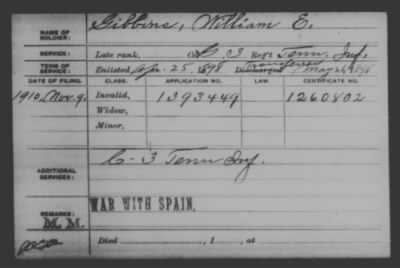 NAME OF SOLDIER: Gibbins, William E.
SERVICE: Late rank, Co. G. 3 Reg't Tenn. Inf.
TERM OF SERVICE: Enlisted Apr. 25, 1898 Discharged Transferred May 26, 1898
DATE OF FILING. CLASS. APPLICATION NO. LAW. CERTIFICATE NO.
1910, Nov. 9. Invalid, 1393449 1260802
Widow,
Minor,
ADDITIONAL SERVICES: G-3 Tenn Inf.
REMARKS: WAR WITH SPAIN.
M. M.
Died , 1 , at